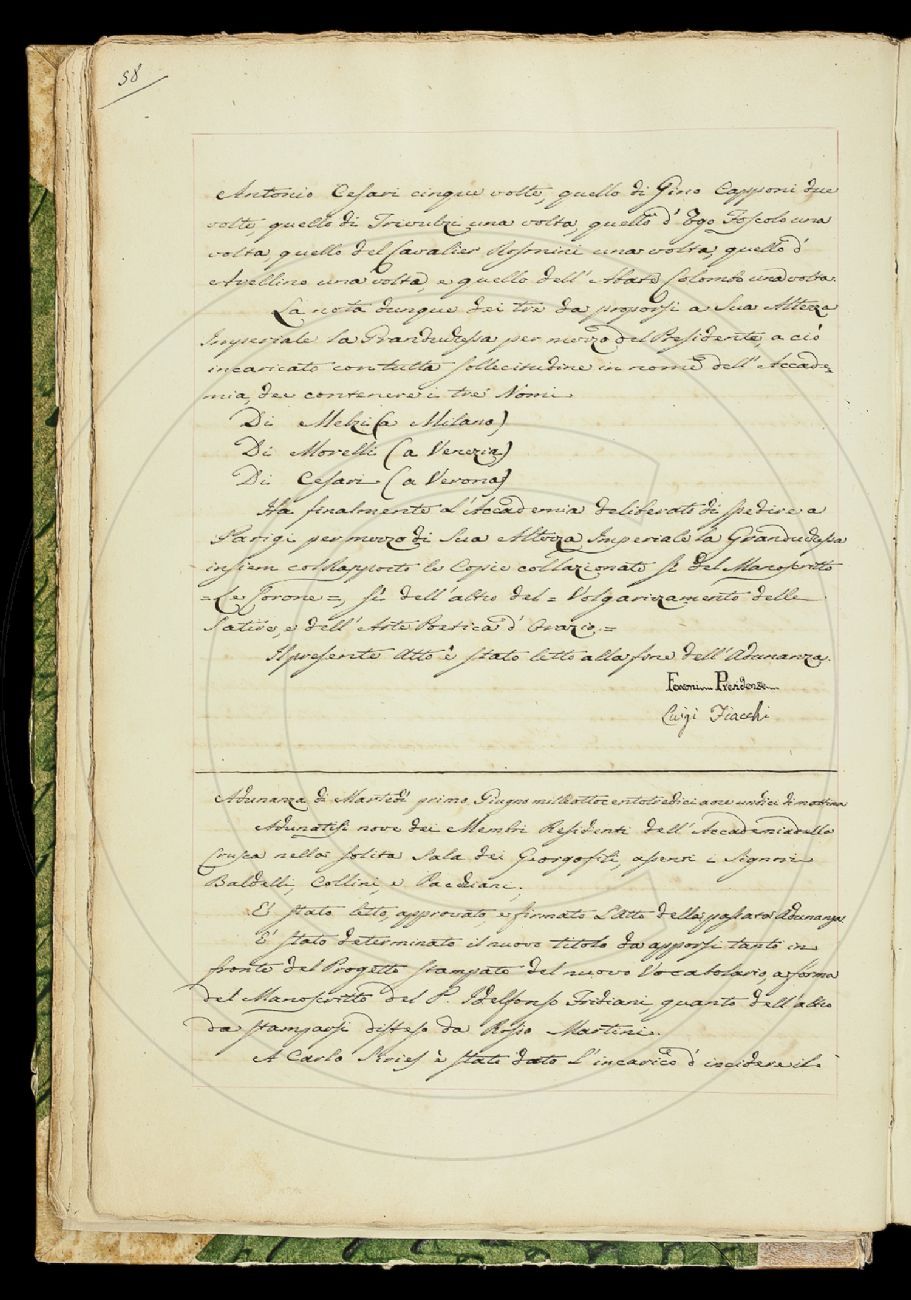 58
Antonio Cesari cinque volte, quello di Gino Capponi due
volte, quello di Trivulzi una volta, quello d' Ugo Foscolo una
volta quello del Cavalier Rosmini una volta, quello d'
Avellino una volta, e quello dell' Abate Colombo una volta.
La nota dunque dei tre da proporsi a Sua Altezza
Imperiale la Granduchessa, per mezzo del Presidente, a ciò
incaricato con tutta sollecitudine in nome dell' Accade=
mia, dee contenere i tre Nomi
Di Melzi (a Milano)
Di Morelli (a Venezia)
Di Cesari (a Verona)
Ha finalmente l'Accademia deliberato di spedire a
Parigi per mezzo di Sua Altezza Imperiale la Granduchessa
insiem col Rapporto le Copie collazionate sì del Manoscritto
= Le Corone =, sì dell'altro del = Volgarizzamento delle
Satire, e dell' Arte Poetica d' Orazio. =
Il presente Atto è stato letto alla fine dell' Adunanza.
Presidente
Luigi Fiacchi
Adunanza di Martedì primo Giugno milleottocentotredici a ore undici di mattina
Adunatisi nove dei Membri Residenti dell' Accademia della
Crusca nella solita Sala dei Georgofili, assenti i Signori
Baldelli, Collini, e Pacchiani;
E' stato letto, approvato, e firmato l'Atto della passata Adunanza
E' stato determinato il nuovo titolo da apporsi tanto in
fronte del Progetto stampato del nuovo Vocabolario, a forma
del Manoscritto del P. Idelfonso Fridiani, quanto dell' altro
da stamparsi disteso da Rosso Martini.
A Carlo Siries è stato dato l' incarico d' incidere il